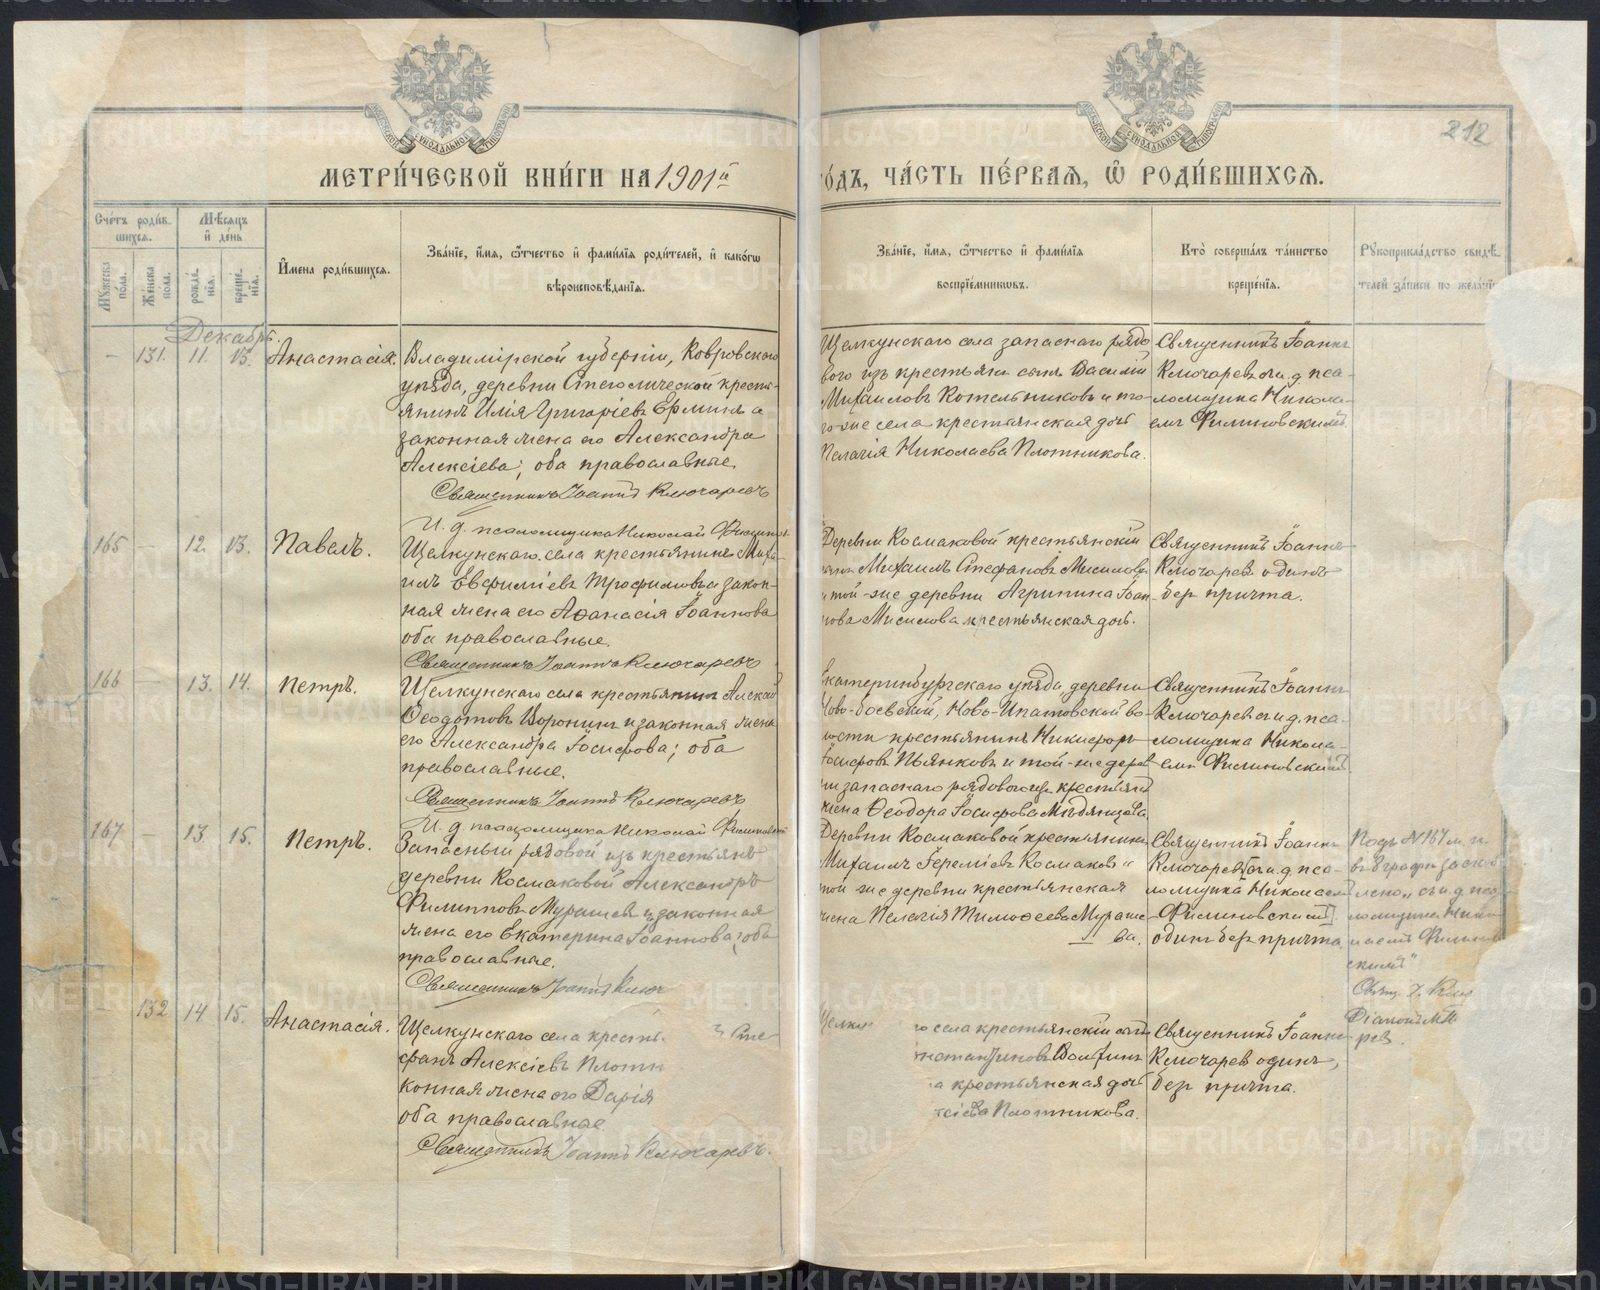 212
МЕТРИ́ЧЕСКОЙ КНИ́ГИ НА 1901й
ГО́ДЪ, ЧА́СТЬ ПЕ́РВАЯ, Ѡ РОДИ́ВШИХСЯ.
Сче́тъ роди́в-
шихся.
Мѣ́сяцъ
и де́нь
Му́жеска
по́ла.
Же́нска
пола.
рожде́-
нія.
креще́-
нія.
И́мена роди́вшихся.
Зва́ніе, и́мя, ѻ́тчество и фами́лія роди́телей, и како́гѡ
вѣроисповѣ́данія.
Зва́ніе, и́мя, ѻ́тчество и фами́лія
воспріе́мниковъ.
Кто̀ соверша́лъ та́инство
креще́нія.
Рукоприкла́дство свидѣ́-
телей за́писи по жела́нію
Декабрь.
– 131. 11. 13. Анастасія.
Владимірской губерніи, Ковровскаго
уѣзда, деревни крестья-
янинъ Илія Григоріевъ Ерминъ и
законная жена его Александра
Алексіева; оба православные.
Священникъ Іоаннъ Ключаревъ
И. д. псаломщика Николай
Щелкунскаго села запаснаго рядо
вого изъ крестьянъ сынъ Василій
Михаиловъ Котельниковъ и то-
го-же села крестьянская дочь
Пелагія Николаева Плотникова.
Священникъ Іоаннъ
Ключаревъ съ и. д. пса-
ломщика Никола-
емъ Филиновскимъ.
165 – 12. 13. Павелъ.
Щелкунскаго села крестьянинъ Миха-
илъ Евфиміевъ Трофимовъ и закон-
ная жена его Аѳанасія Іоаннова
оба православные.
Священникъ Іоаннъ Ключаревъ
Деревни Космаковой крестьянскій
Михаилъ Стефановъ Мисилов
и той-же деревни Агрипина Іоан-
нова Мисилова крестьянская дочь.
Священникъ Іоаннъ
Ключаревъ одинъ
безъ причта.
166 – 13. 14. Петръ.
Щелкунскаго села крестьянинъ Алексій
Ѳеодотовъ Воронинъ и законная жена
его Александра Іосифова; оба
православные.
Священникъ Іоаннъ Ключаревъ
И. д. псаломщика Николай Филиновскій
Екатеринбургскаго уѣзда, деревни
Ново-боевской, Ново-Ипатовской во-
лости крестьянинъ Никифоръ
Іосифовъ Пьянковъ и той-же дерев
ни запаснаго рядового изъ крестьянъ
жена Ѳеодора Іосифова
Священникъ Іоаннъ
Ключаревъ съ и. д. пса-
ломщика Никола-
емъ Филиновскимъ
167 – 13. 15. Петръ.
Запасный рядовой изъ крестьянъ
деревни Космаковой Александръ
Филипповъ Мурашевъ и законная
жена его Екатерина Іоаннова; оба
православные.
Священникъ Іоаннъ Ключ
Деревни Космаковой крестьянинъ
Михаилъ Іереміевъ Космаковъ и
той же деревни крестьянская
жена Пелагія Тимоѳеева Мураше-
ва.
Священникъ Іоаннъ
Ключаревъ [съ и. д. пса-
ломщика Николаемъ
Филиновскимъ]
одинъ безъ причта.
Подъ № 167 м. п.
въ 8 графѣ заскоб
лено „съ и. д. пса
ломщика Нико
лаемъ Филинов
скимъ"
Свящ. І. Клю
Діаконъ
– 132 14 15. Анастасія.
Щелкунскаго села крестья Сте-
фанъ Алексіевъ Плотн
конная жена его Дарія
оба православные.
Священникъ Іоаннъ Ключаревъ.
Щелкун го села крестьянскій сынъ
нстантиновъ
а крестьянская дочь
ксіева Плотникова.
Священникъ Іоаннъ
Ключаревъ одинъ,
безъ причта.
METRIKI.GASO-URAL.RU